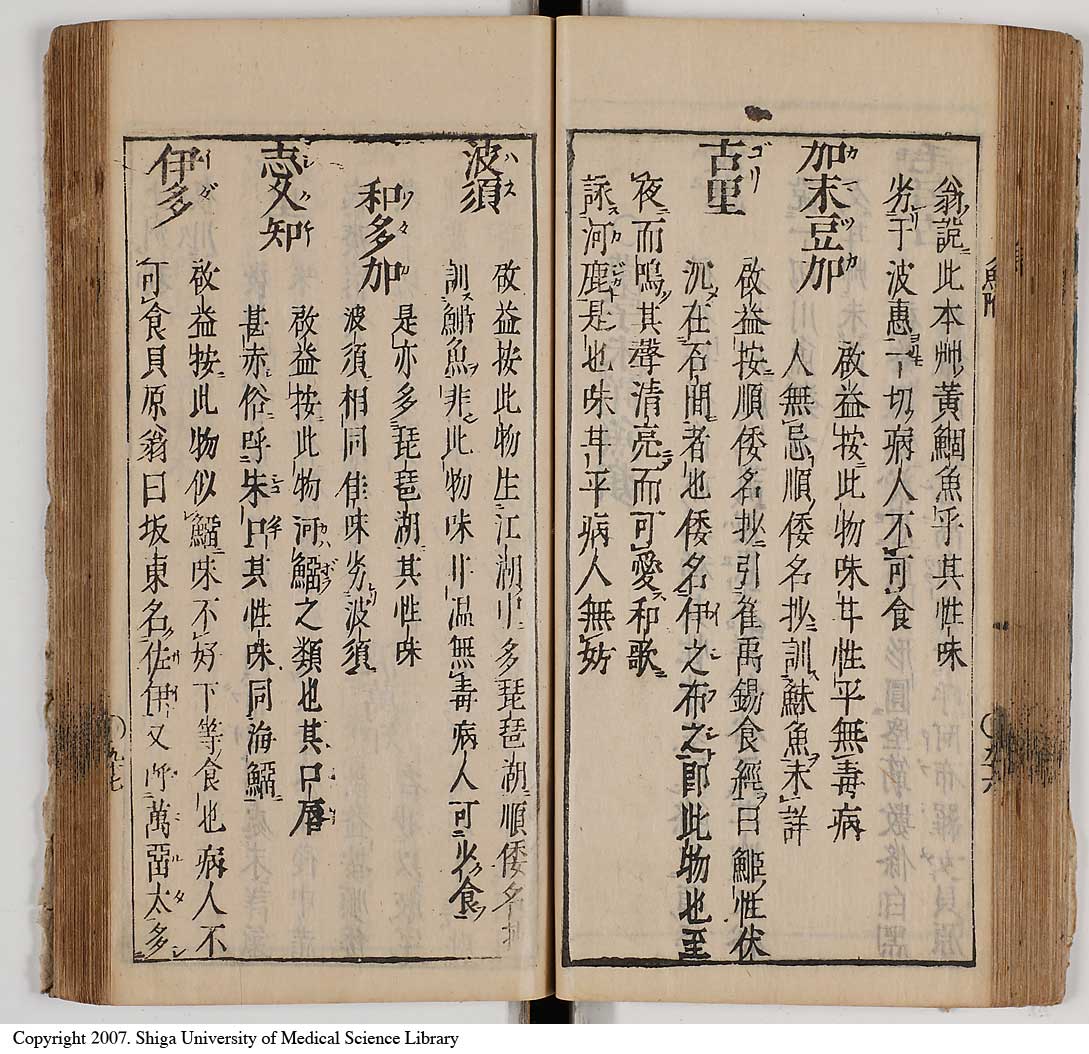 翁說此本州黃鯝魚乎其性味
劣于波惠一切病人不可食
加末豆加
啟益按此物味甘性平無毒病
人無忌順倭名抄訓𩶱魚未詳
啟益按順倭名抄引崔禹錫食經曰鮔性伏
古里
沉在石間者也倭名伊之布之即此物也至
夜而鳴其聲清亮而可愛和歌
詠河鹿是也味甘平病人無妨
魚附
九十六
波須
啟益按此物生江湖中多琵琶湖順倭名抄
訓魚非此物味甘温無毒病人可少食
和多加
是亦多琵琶湖其性味
波須相同佳味劣波須
志久知
啟益按此物河鰡之類也其口唇
甚赤俗呼朱口其性味同海鰡
伊多
啟益按此物似鰡味不好下等食也病人不
可食貝原翁曰坂東名佐伊又所萬留太多
九十七
Copyright 2007. Shiga University of Medical Science Library